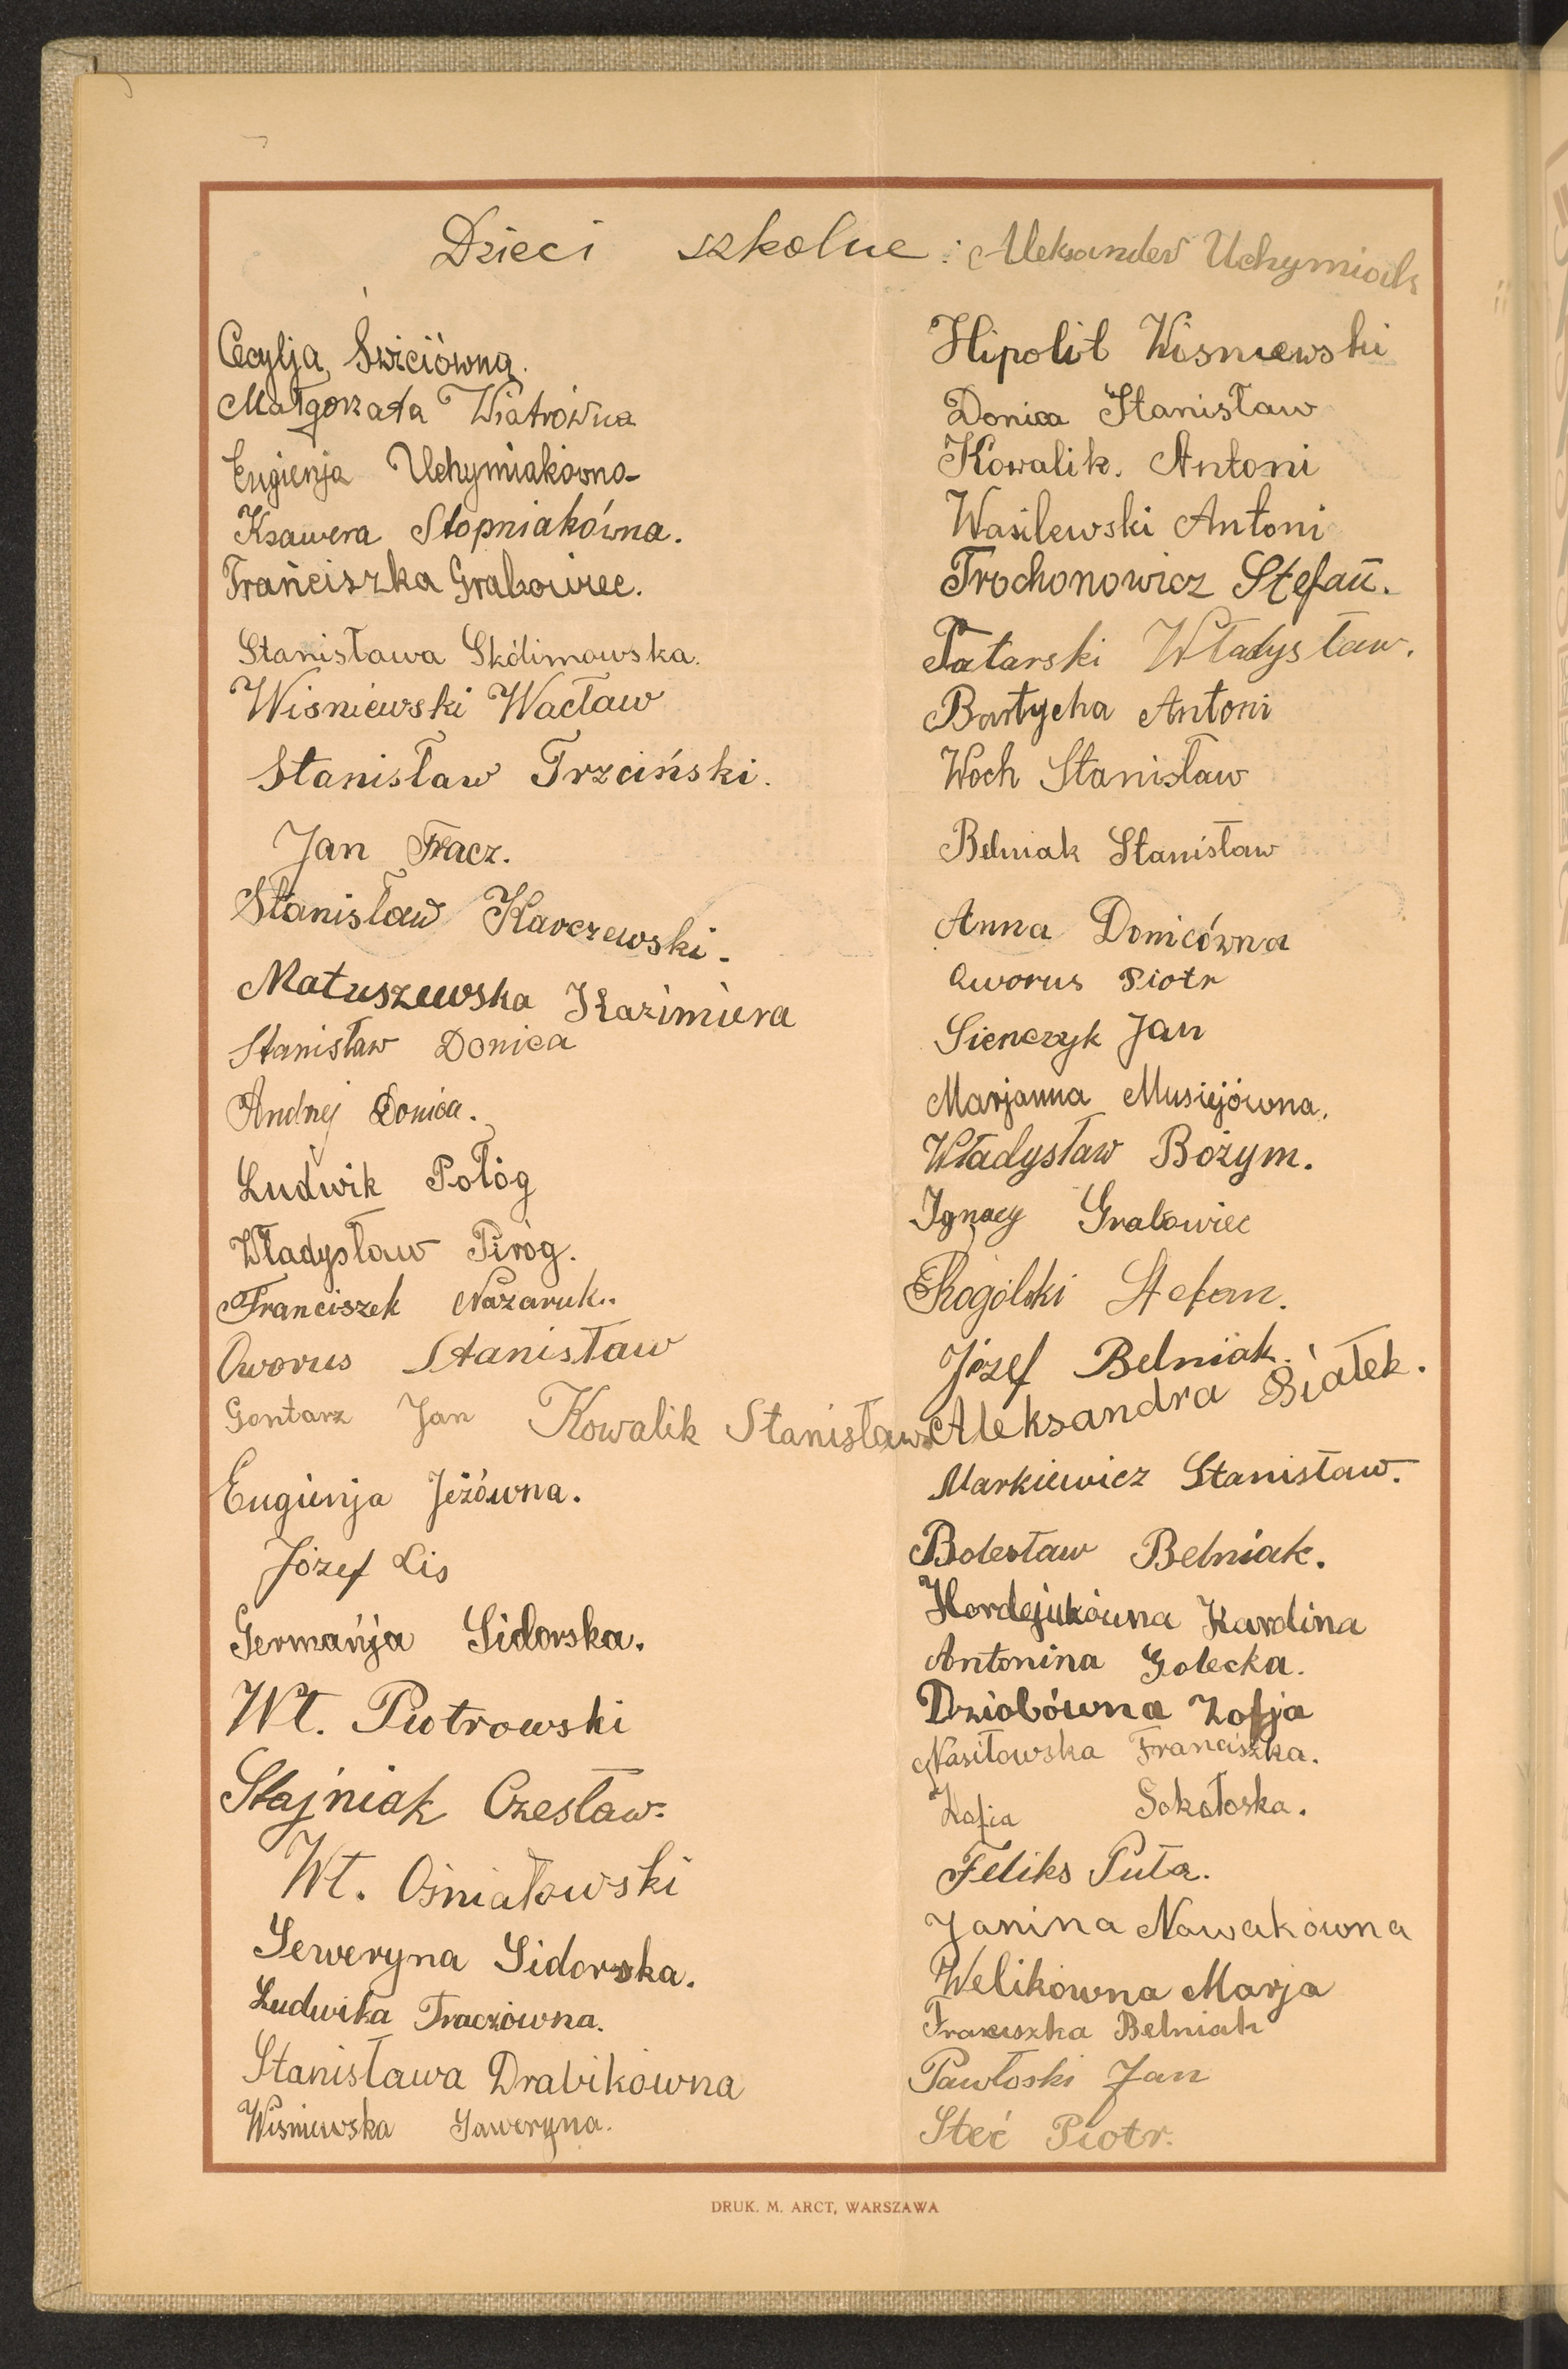 Dzieci szkolne: Aleksander Uchymiak
Cecylja Świciówna.
Małgorzata Wiatrówna
Eugienja Uchymiakówna
Ksawera Stopniakówna.
Frańciszka Grabowiec.
Stanisława Skólimowska.
Wisniewski Wacław
Stanisław Trzciński.
Jan Tracz.
Stanisław Karczewski.
Matuszewska Kazimiera
Stanisław Donica
Andrzej Donica.
Ludwik Połóg
Władysław Piróg.
Franciszek Nazaruk.
Oworus Stanisław
Gontarz Jan Kowalik Stanisław
Eugienja Jeżówna.
Józef Lis
Germańja Sidorska.
Wł. Piotrowski
Stajniak Czesław.
Wł. Ośniałowski
Seweryna Sidorska.
Ludwika Traczówna.
Stanisława Drabikówna
Wisniewska Saweryna.
Hipolit Wisniewski
Donica Stanisław
Kowalik. Antoni
Wasilewski Antoni
Trochonowicz Stefan.
Tatarski Władysław.
Bartycha Antoni
Woch Stanisław
Belniak Stanisław
Anna Donicówna
Oworus Piotr
Sienczyk Jan
Marjanna Musiejówna.
Władysław Bożym.
Ignacy Grabowiec
Rogólski Stefan.
Józef Belniak.
Aleksandra Białek.
Markiewicz Stanisław.
Bolesław Belniak.
Hordejukówna Karolina
Antonina Golecka.
Dziobówna Zofja
Nasiłowska Franciszka.
Zofia Sokołoska.
Feliks Puła.
Janina Nowakówna
Welikówna Marja
Franciszka Belniak
Pawłoski Jan
Steć Piotr.
DRUK. M. ARCT, WARSZAWA